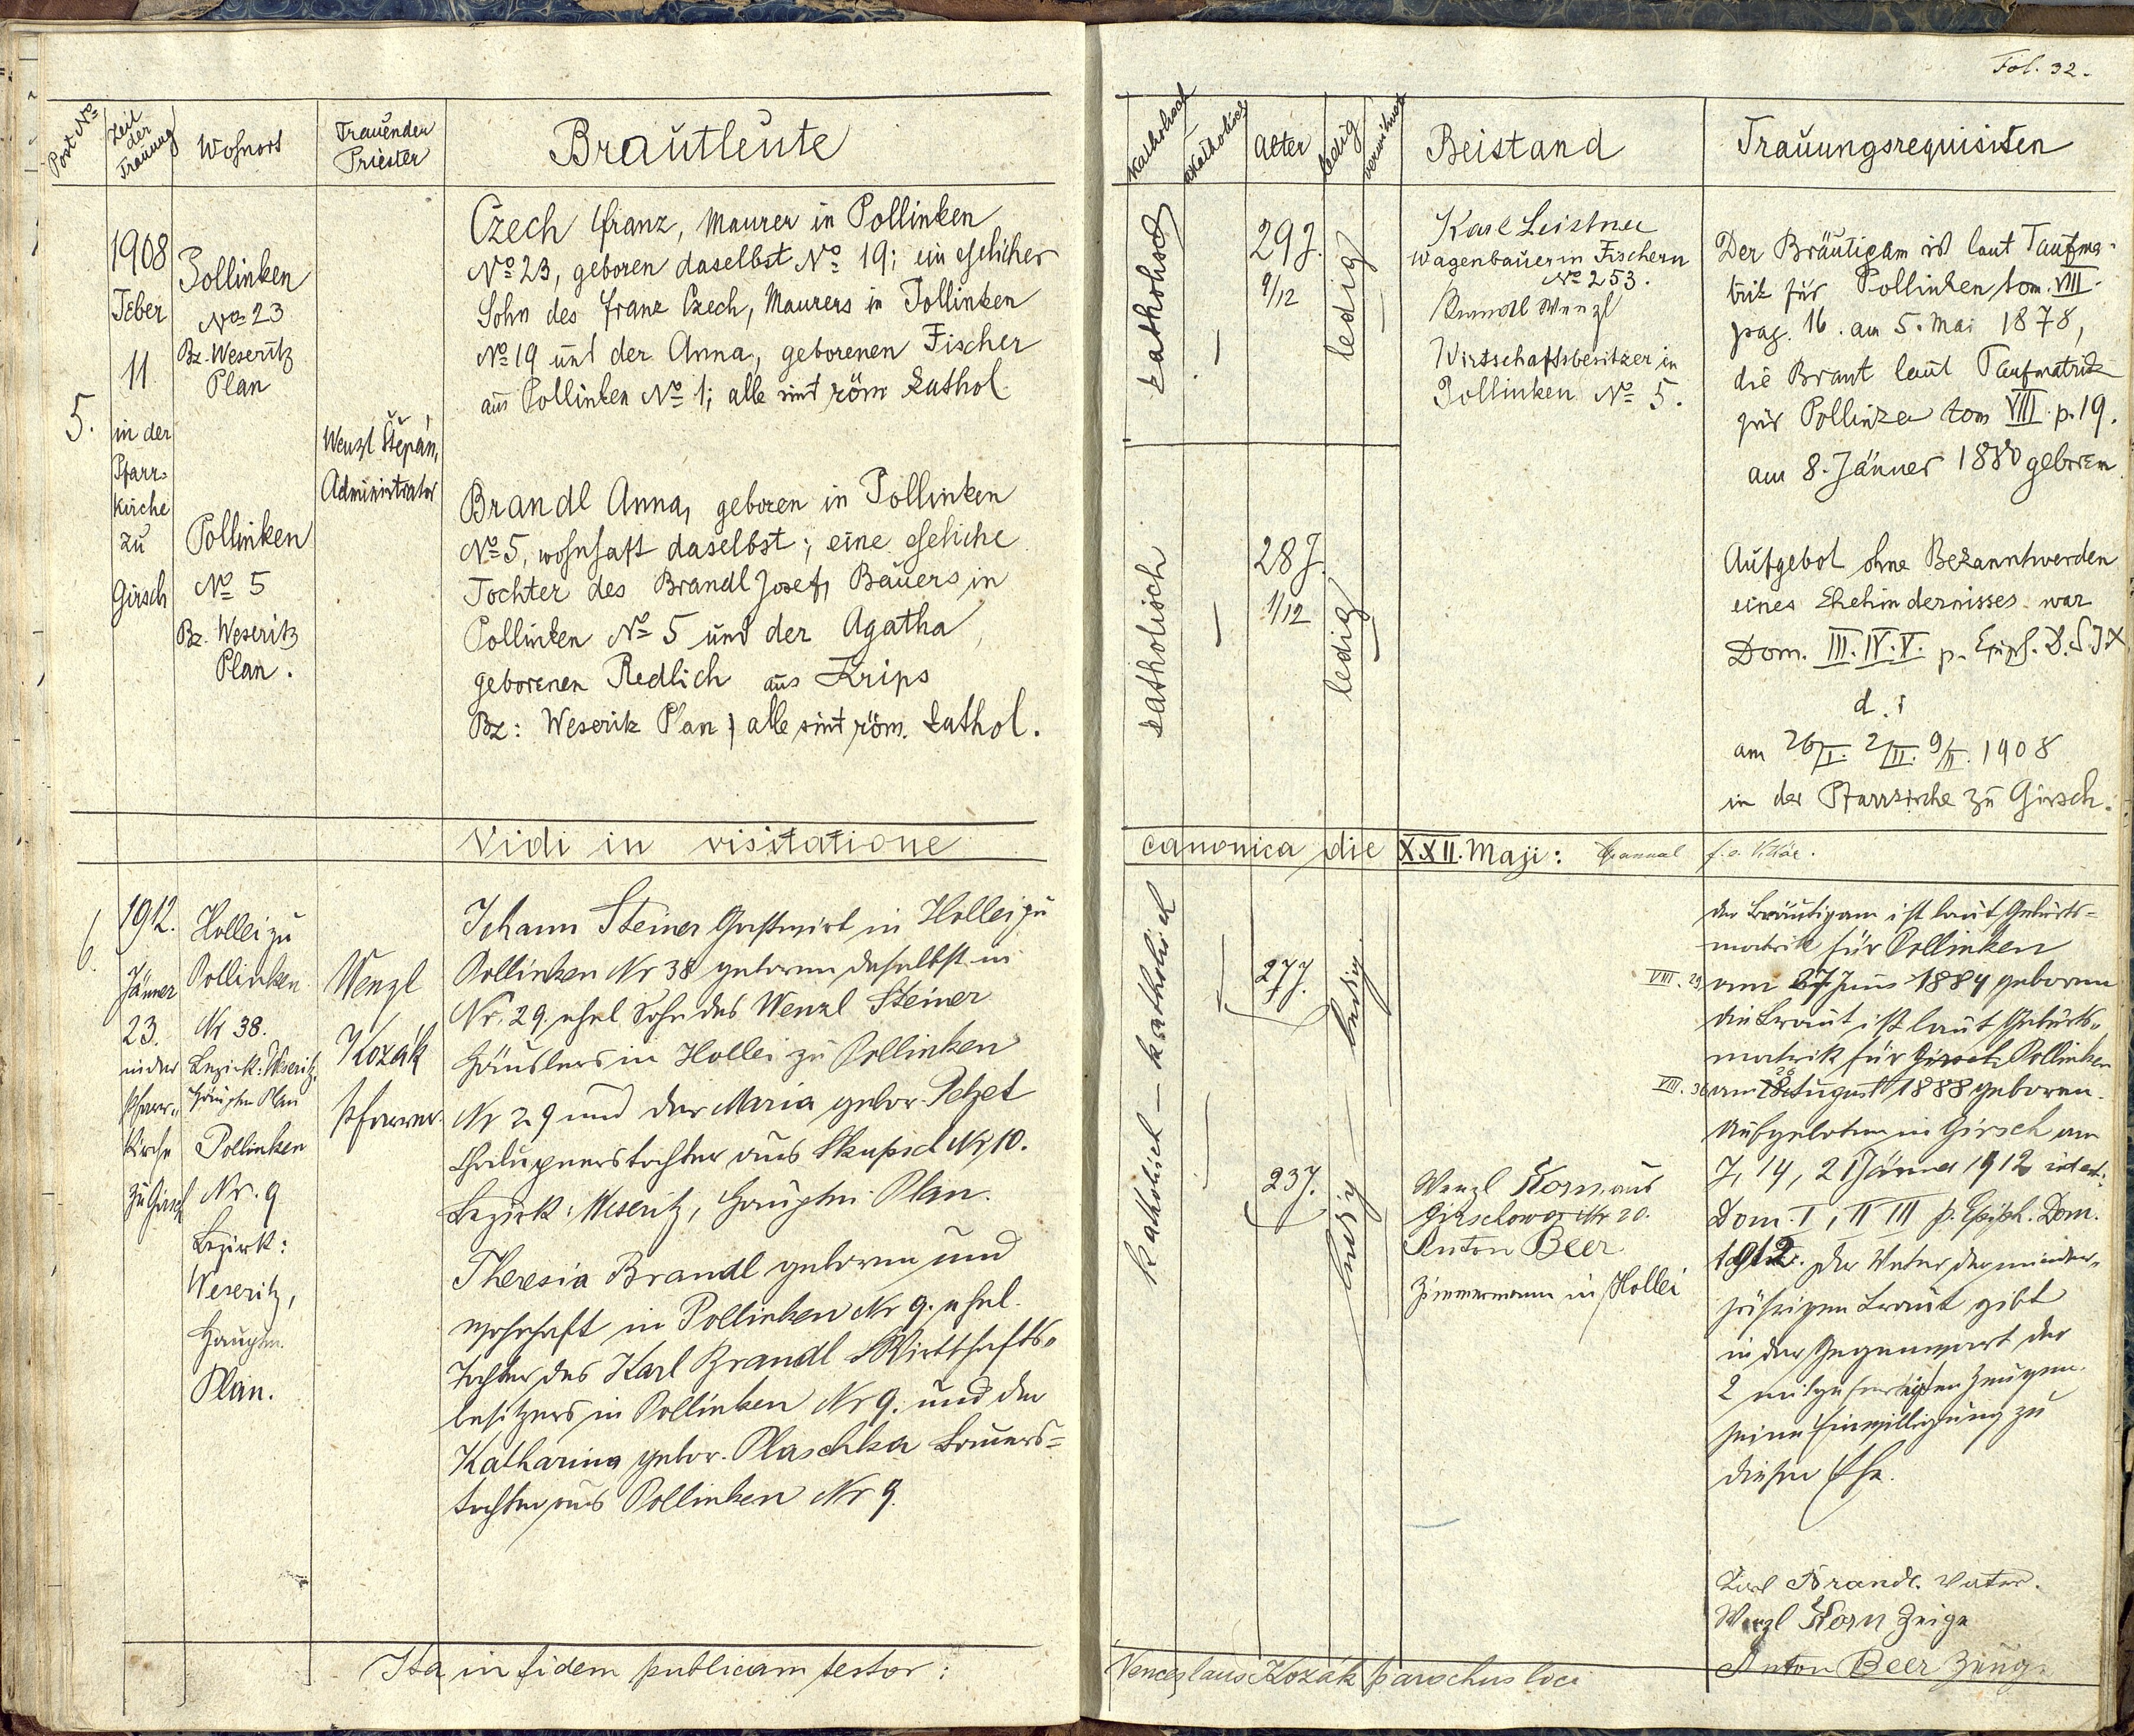 Fol. 32.
Post No
Zeit der Trauung
Wohnort
Trauender Priester
Brautleute
Katholisch
Akatholisch
Alter
ledig
verwitwet
Beistand
Trauungsrequisiten
5.
1908
Feber
11
in der
Pfarr-
kirche
zu
Girsch
Pollinken
No 23
Bz. Weseritz
Plan
Pollinken
No 5
Bz. Weseritz
Plan.
Wenzl Štěpán,
Administrator
Czech Franz, Maurer in Pollinken
No 23, geboren daselbst No 19; ein ehelicher
Sohn des Franz Czech, Maurers in Pollinken
No 19 und der Anna, geborenen Fischer
aus Pollinken No 1; alle sind röm kathol
Brandl Anna, geboren in Pollinken
No 5, wohnhaft daselbst; eine eheliche
Tochter des Brandl Josef, Bauers in
Pollinken No 5 und der Agatha,
geborenen Redlich aus Krips
Bz: Weseritz Plan; alle sind röm. kathol.
katholisch
29 J.
9/12
ledig
katholisch
28 J.
1/12
ledig
Karl Leistner
Wagenbauer in Fischern
No 253.
Brandl Wenzl
Wirtschaftsbesitzer in
Pollinken No 5.
Der Bräutigam ist laut Taufma-
trik für Pollinken tom. VIII.
pag. 16. am 5. Mai 1878,
die Braut laut Taufmatrik
für Pollinken tom VIII. p. 19.
am 8. Jänner 1880 geboren
Aufgebot ohne Bekanntwerden
eines Ehehindernisses war
Dom. III. IV. V. p. Epiph. D.
d. i
am 26/I. 2/II. 9/II. 1908
in der Pfarrkirche zu Girsch.
Vidi in visitatione canonica die XXII. Maji:
6.
1912.
Jänner
23.
in der
Pfarr-
kirche
zu Girsch
Hollei zu
Pollinken
Nr 38.
Bezirk: Weseritz,
Hauptm Plan
Pollinken
Nr. 9
Bezirk:
Weseritz,
Hauptm.
Plan.
Wenzl
Kozák
Pfarrer.
Johann Steiner Gastwirt in Hollei zu
Pollinken Nr 38 geboren daselbst in
Nr. 29. ehel. Sohn des Wenzl Steiner
Häuslers in Hollei zu Pollinken
Nr 29 und der Maria gebor. Petzet
Chalupnerstochter aus Skupsch Nr 10.
Bezirk: Weseritz, Hauptm. Plan.
Theresia Brandl geboren und
wohnhaft in Pollinken Nr 9. ehel.
Tochter des Karl Brandl Wirtschafts-
besitzers in Pollinken Nr 9. und der
Katharina gebor. Plaschka Bauers-
tochter aus Pollinken Nr 9.
katholisch – katholisch
27 J.
ledig
23 J.
ledig
Wenzl Korn aus
Girschowa Nr 20.
Anton Beer
Zimmermann in Hollei
der Bräutigam ist laut Geburts-
matrik für Pollinken
VIII. 29 am 27 Juni 1884 geboren
die Braut ist laut Geburts-
matrik für Girsch Pollinken
VIII. 36 am 26 August 1888 geboren.
Aufgeboten in Girsch am
7, 14, 21 Jänner 1912 id est:
Dom. I, II III p. Epiph. Dom.
1912. Der Vater der minder-
jährigen Braut gibt
in der Gegenwart der
2 mitgefertigten Zeugen
seine Einwilligung zu
dieser Ehe.
Karl Brandl. Vater.
Wenzl Korn Zeige
Anton Beer Zeuge
Ita in fidem publicam testor: Venceslaus Kozák parochus loci